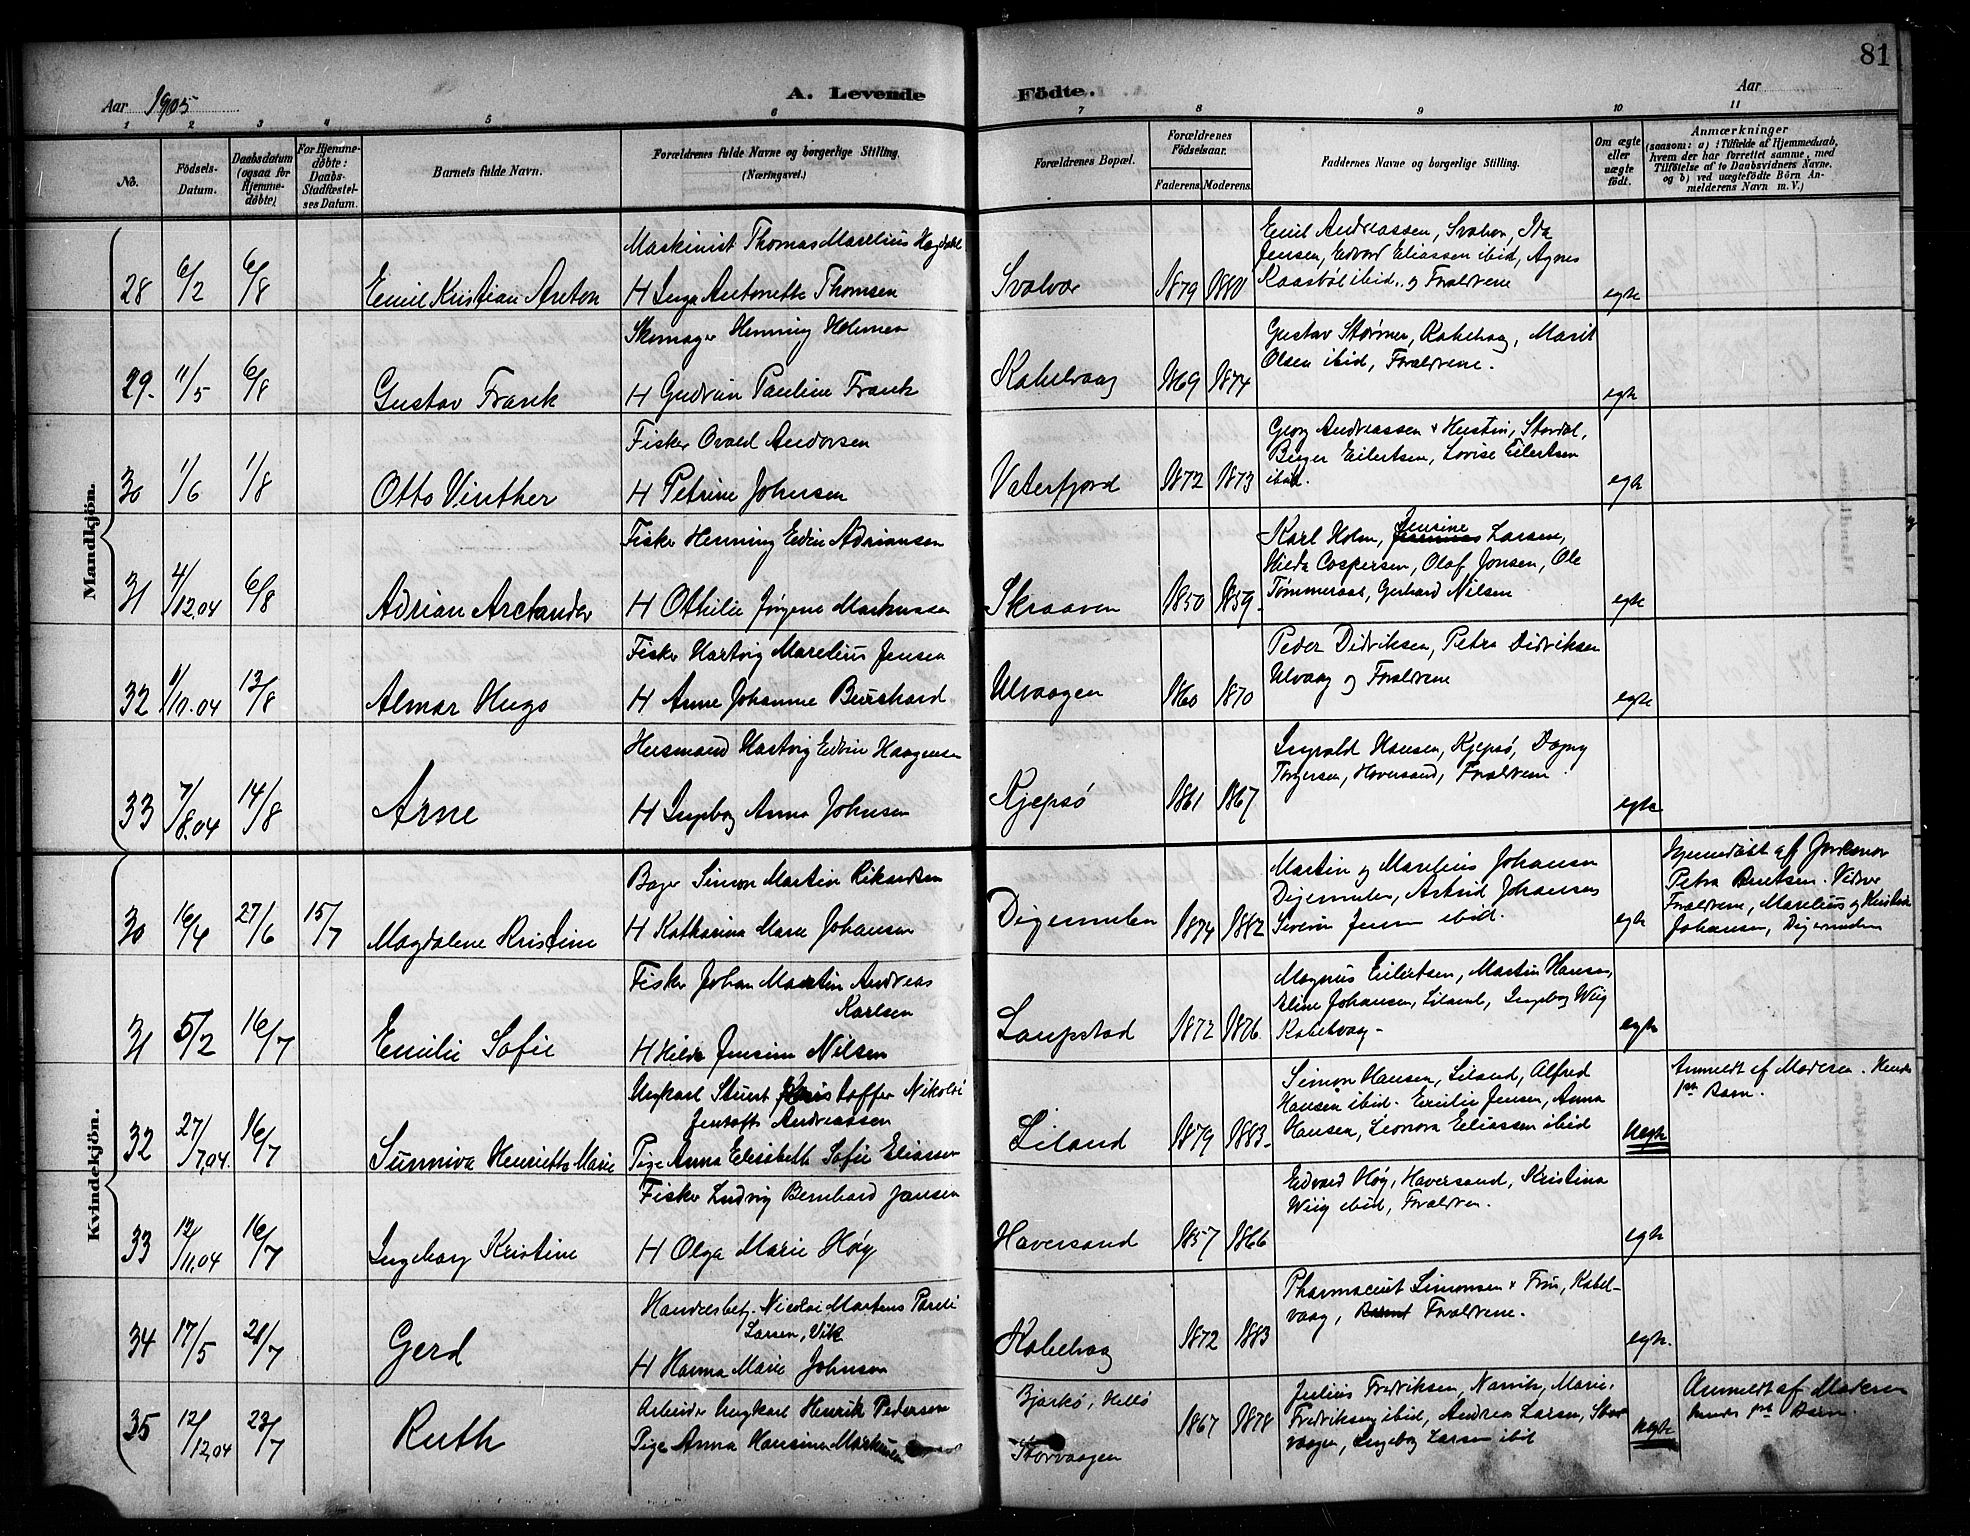 81
Aar 1905
A. Levende Födte.
Aar
1 2 3 4 5 6 7 8 9 10 11
No.
Födsels-Datum.
Daabsdatum (ogsaa for Hjemmedøbte)
For Hjemmedøbte: Daabs-Stadfæstelses Datum.
Barnets fulde Navn.
Forældrenes fulde Navne og borgerlige Stilling.
(Næringsvei.)
Forældrenes Bopæl.
Forældrenes Födselsaar.
Faderens. Moderens.
Faddernes Navne og borgerlige Stilling.
Om ægte eller uægte født.
Anmærkninger
(saasom: a) i Tilfælde af Hjemmedaab,
hvem der har forrettet samme, med
Tilføielse af to Daabsvidners Navne.
og b) ved uægtefödte Börn An-
melderens Navn m. V.)
Mandkjön.
Maskinist Thomas Marelius Hagdahl
28 6/2 6/8 Emil Kristian Anton H Inga Antonette Thomsen
Svolvær 1879 1880
Emil Andreassen, Svolvær, Ida
Jensen, Edvard Eliassen ibid, Agnes
Kaasbøl ibid. og Forældrene
egte
Skomager Henning Holmen
29. 11/5 6/8 Gustav Frank H Gudrun Pauline Frank
Kabelvaag 1869 1874
Gustav Størmer, Kabelvaag, Marit
Olsen ibid, Forældrene.
egte
Fisker Osvald Andorsen
30 1/6 1/8 Otto Vinther H Petrine Johnsen
Vaterfjord 1872 1873
Georg Andreassen + Hustru, Stordal,
Birger Eilertsen, Lovise Eilertsen
ibid.
egte
Fisker Henning Edvin Adriansen
31 4/12.04 6/8 Adrian Arctander H Othilie Jørgine Markussen
Skraaven 1850 1859.
Karl Holm, Jensine Larsen,
Hilda Caspersen, Olaf Jonsen, Ole
Tømmeraas, Gerhard Nilsen
egte
Fisker Hartvig Marelius Jensen
32 11/11.04 13/8 Almar Hugo H Anne Johanne Burchard
Ulvaagen 1860 1870
Peder Didriksen, Petra Didriksen
Ulvaag og Forældrene
egte
Husmand Hartvig Edvin Haagensen
33 7/8.04 14/8 Arne H Ingeborg Anna Johnsen
Kjepsø 1861 1867
Ingvald Hansen, Kjepsø, Dagny
Torgersen, Haversand, Forældrene
egte
Kvindekjön.
Bager Simon Martin Rikardsen
30 16/4 27/6 15/7 Magdalene Kristine H Katharina Marie Johansen
Digermulen 1874 1882
Martin og Marelius Johansen
Digermulen, Astrid Johansen
Severin Jensen ibid.
egte
Hjemmedøbt af Jordemor
Petra Berntsen. Vidner
Forældrene, Marelius og Kristine
Johansen, Digermulen
Fisker Johan Martin Andreas
Karlsen
31 5/2 16/7 Emilie Sofie H Hilda Jensine Nilsen
Laupstad 1872 1876.
Magnus Eilertsen, Martin Hansen,
Eline Johansen, Liland, Ingeborg Wiig
Kabelvaag -
egte
Ungkarl Stuert Kristoffer Nikolai
Jentoft Andreassen
32 27/7.04. 16/7 Sunniva Henriette Marie Pige Anna Elisabeth Sofie Eliassen
Liland 1879 1883.
Simon Hansen, Liland, Alfred
Hansen ibid. Emilie Jensen, Anna
Hansen, Leonora Eliassen ibid
uegte
Anmeldt af Moderen. Hendes
1ste Barn.
Fisker Ludvig Bernhard Jansen
33 12/11.04 16/7 Ingeborg Kristine H Olga Marie Høyg
Haversand 1857 1866
Edvard Høg, Haversand, Kristina
Wiig ibid, Forældrene.
egte
Handelsbetj. Nicolai Martens Pareli
Larsen, Vik
34 17/5 21/7 Gerd H Hanna Marie Johnsen
Kabelvaag 1872 1883
Pharmaceut Simonsen + Frue, Kabel-
vaag, Forældrene.
egte.
Arbeider Ungkarl Henrik Pedersen
35 12/12.04 23/7 Ruth Pige Anna Hansine Markussen
Bjarkø, Hellø
Storvaagen
1867 1878
Julius Fredriksen, Narvik, Marie
Fredriksen ibid, Andrea Larsen, Stor
vaagen, Ingeborg Larsen ibid
uegte
Anmeldt af Moderen
Hendes 1ste Barn.